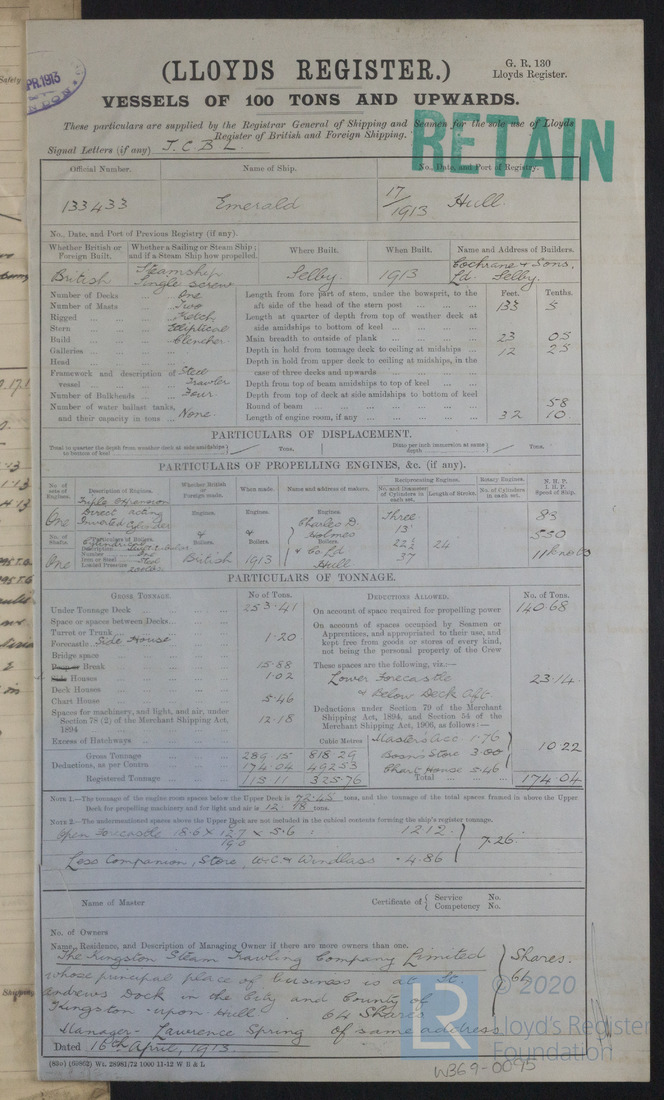 PR.1913
(LLOYDS REGISTER.)
G. R. 130
Lloyds Register.
VESSELS OF 100 TONS AND UPWARDS.
These particulars are supplied by the Registrar General of Shipping and Seamen for the sole use of Lloyds
Register of British and Foreign Shipping.
RETAIN
Signal Letters (if any) J.C.B.L.
Official Number. Name of Ship. No., Date, and Port of Registry.
133433 Emerald 17/1913 Hull.
No., Date, and Port of Previous Registry (if any).
Whether British or Foreign Built. Whether a Sailing or Steam Ship; and if a Steam Ship how propelled. Where Built. When Built. Name and Address of Builders.
British Steamship Single screw Selby. 1913 Cochrane & Sons, Ld. Selby.
Number of Decks One
Number of Masts Two
Rigged Ketch
Stern Elliptical
Build Clencher
Galleries
Head
Framework and description of vessel Steel Trawler
Number of Bulkheads Four
Number of water ballast tanks, and their capacity in tons None.
Feet. Tenths.
Length from fore part of stem, under the bowsprit, to the aft side of the head of the stern post 133 5
Length at quarter of depth from top of weather deck at side amidships to bottom of keel
Main breadth to outside of plank 23 05
Depth in hold from tonnage deck to ceiling at midships 12 25
Depth in hold from upper deck to ceiling at midships, in the case of three decks and upwards
Depth from top of beam amidships to top of keel
Depth from top of deck at side amidships to bottom of keel
Round of beam 58
Length of engine room, if any 32 10
PARTICULARS OF DISPLACEMENT.
Total to quarter the depth from weather deck at side amidships to bottom of keel Tons.
Ditto per inch immersion at same depth Tons.
PARTICULARS OF PROPELLING ENGINES, &c. (if any).
No. of sets of Engines. Description of Engines. Whether British or Foreign made. When made. Name and address of makers. Reciprocating Engines. Rotary Engines. N. H. P. I. H. P. Speed of Ship.
No. and Diameter of Cylinders in each set. Length of Stroke. No. of Cylinders in each set.
One Triple Expansion Direct acting Inverted Cylinder
Engines. Engines. Engines.
Charles D. Holmes & Co Ld Hull
Three 13" 22½ 37 24" 83 550
No. of Shafts. Particulars of Boilers. Boilers. Boilers. Boilers.
One
Description
Number One
Iron or Steel Steel
Loaded Pressure
British 1913
PARTICULARS OF TONNAGE.
Gross Tonnage. No of Tons.
Under Tonnage Deck 253.41
Space or spaces between Decks
Turret or Trunk
Forecastle Side House 1.20
Bridge space
Poop or Break 15.88
Side Houses 1.02
Deck Houses
Chart House 5.46
Spaces for machinery, and light, and air, under Section 78 (2) of the Merchant Shipping Act, 1894 12.18
Excess of Hatchways
Cubic Metres
Gross Tonnage 289.15 818.29
Deductions, as per Contra 174.04 492.53
Registered Tonnage 115.11 325.76
Deductions Allowed. No. of Tons.
On account of space required for propelling power 140.68
On account of spaces occupied by Seamen or Apprentices, and appropriated to their use, and kept free from goods or stores of every kind, not being the personal property of the Crew
These spaces are the following, viz.:—
Lower Forecastle & Below Deck Aft. 23.14
Deductions under Section 79 of the Merchant Shipping Act, 1894, and Section 54 of the Merchant Shipping Act, 1906, as follows:—
Masters acc. 1.76
Bosn's Store 3.00
Chart House 5.46
10.22
Total 174.04
NOTE 1.—The tonnage of the engine room spaces below the Upper Deck is 72.45 tons, and the tonnage of the total spaces framed in above the Upper
Deck for propelling machinery and for light and air is 12.18 tons.
NOTE 2.—The undermentioned spaces above the Upper Deck are not included in the cubical contents forming the ship's register tonnage.
Open Forecastle 12.12
Less Companion, Store, W.C. & Windlass 4.86
7.26
Name of Master
Certificate of Service No. Competency No.
No. of Owners
Name, Residence, and Description of Managing Owner if there are more owners than one.
The Kingston Steam Trawling Company Limited Shares.
whose principal place of business is at St. 64
Andrews Dock in the City and County of
Kingston-upon-Hull 64 Shares
Manager- Lawrence Spring of same address
Dated 16th April, 1913.
W369-0095
LR
© 2020
Lloyd's Register
Foundation